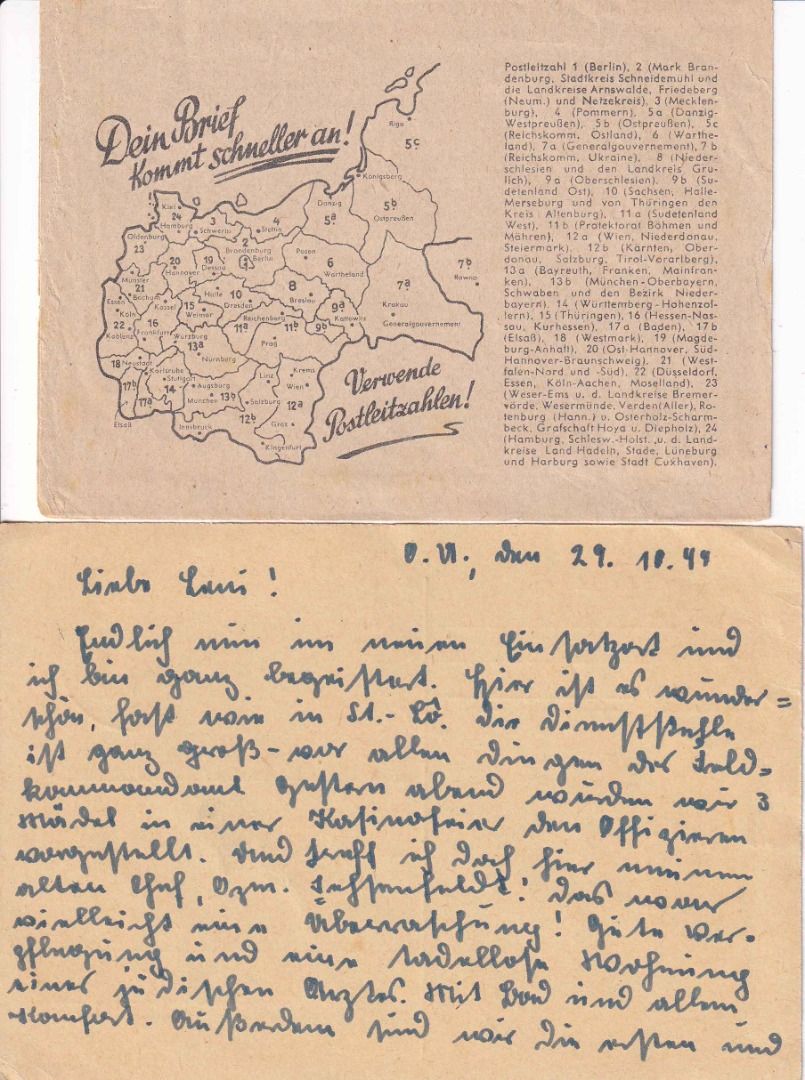 Dein Brief
kommt schneller an!
Riga
5c
Königsberg
Danzig
5a
5b
Ostpreußen
Kiel
24
Hamburg
3
Schwerin
4
Stettin
Oldenburg
23
2
Brandenburg
1
Berlin
Posen
6
Wartheland
7b
Rowno
20
Hannover
19
Dessau
Münster
21
Bochum
Essen
Köln
22
Koblenz
Kassel
Halle
10
Dresden
8
Breslau
9a
Kattowitz
7a
Krakau
Generalgouvernement
16
Frankfurt
15
Weimar
Reichenberg
11a
11b
9b
Prag
Würzburg
13a
Nürnberg
18
Neustadt
Karlsruhe
Stuttgart
14
17b
17a
Elsaß
Augsburg
München
13b
Linz
Krems
Wien
Salzburg
12a
12b
Graz
Innsbruck
Klagenfurt
Verwende
Postleitzahlen!
Postleitzahl 1 (Berlin), 2 (Mark Bran-
denburg, Stadtkreis Schneidemühl und
die Landkreise Arnswalde, Friedeberg
(Neum.) und Netzekreis), 3 (Mecklen-
burg), 4 (Pommern), 5a (Danzig-
Westpreußen), 5b (Ostpreußen), 5c
(Reichskomm. Ostland), 6 (Warthe-
land), 7a (Generalgouvernement), 7b
(Reichskomm. Ukraine), 8 (Nieder-
schlesien und den Landkreis Gru-
lich), 9a (Oberschlesien), 9b (Su-
detenland Ost), 10 (Sachsen, Halle-
Merseburg und von Thüringen den
Kreis Altenburg), 11a (Sudetenland
West), 11b (Protektorat Böhmen und
Mähren), 12a (Wien, Niederdonau,
Steiermark), 12b (Kärnten, Ober-
donau, Salzburg, Tirol-Vorarlberg),
13a (Bayreuth, Franken, Mainfran-
ken), 13b (München-Oberbayern,
Schwaben und den Bezirk Nieder-
bayern), 14 (Württemberg-Hohenzol-
lern), 15 (Thüringen), 16 (Hessen-Nas-
sau, Kurhessen), 17a (Baden), 17b
(Elsaß), 18 (Westmark), 19 (Magde-
burg-Anhalt), 20 (Ost-Hannover, Süd-
Hannover-Braunschweig), 21 (West-
falen-Nord und -Süd), 22 (Düsseldorf,
Essen, Köln-Aachen, Moselland), 23
(Weser-Ems u. d. Landkreise Bremer-
vörde, Wesermünde, Verden (Aller), Ro-
tenburg (Hann.) u. Osterholz-Scharm-
beck, Grafschaft Hoya u. Diepholz), 24
(Hamburg, Schlesw.-Holst. u. d. Land-
kreise Land Hadeln, Stade, Lüneburg
und Harburg sowie Stadt Cuxhaven).
O.U., den 29. 10. 44
Liebe Leni!
Endlich nun im neuen Einsatzort und
ich bin ganz begeistert. Hier ist es wunder=
schön, fast wie in St.-Lô. Die Dienststelle
ist ganz groß - vor allen Dingen des Feld=
kommandant Gestern abend wurden wir 3
Mädel in einer Kasinofeier den Offizieren
vorgestellt. Und treff ich doch hier meinen
alten Chef, Ozm. Das war
vielleicht eine Überraschung! Gute Ver-
pflegung und eine tadellose Wohnung
eines jüdischen Arztes. Mit Bad und allem
Komfort. Außerdem sind wir die ersten und